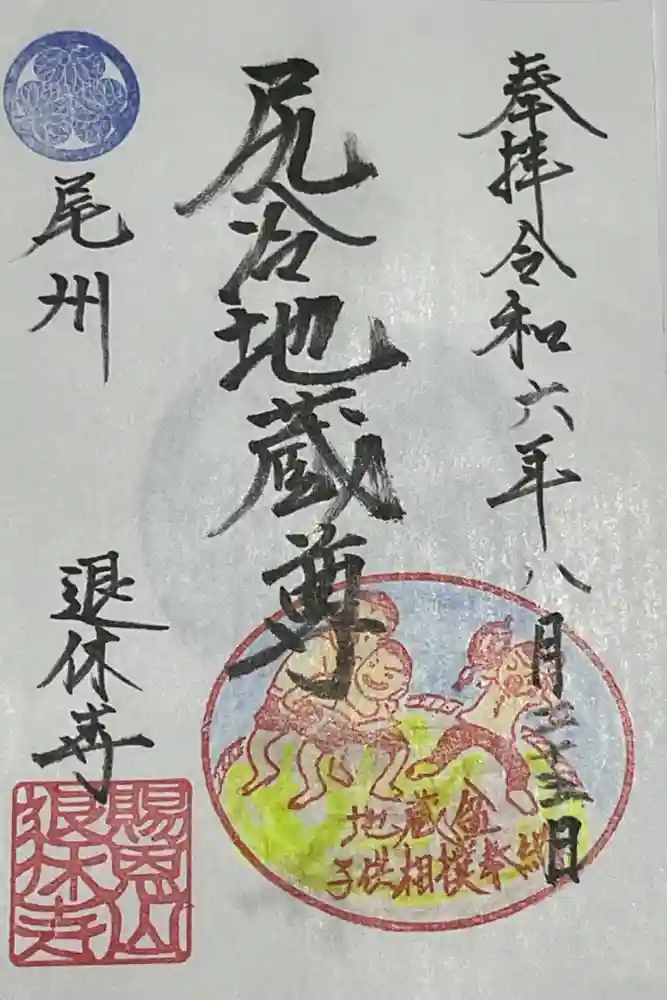 奉拝 令和六年八月二十五日
尻冷地蔵尊
尾州 退休寺
地蔵盆
子供相撲奉納
賜恩山
退休寺